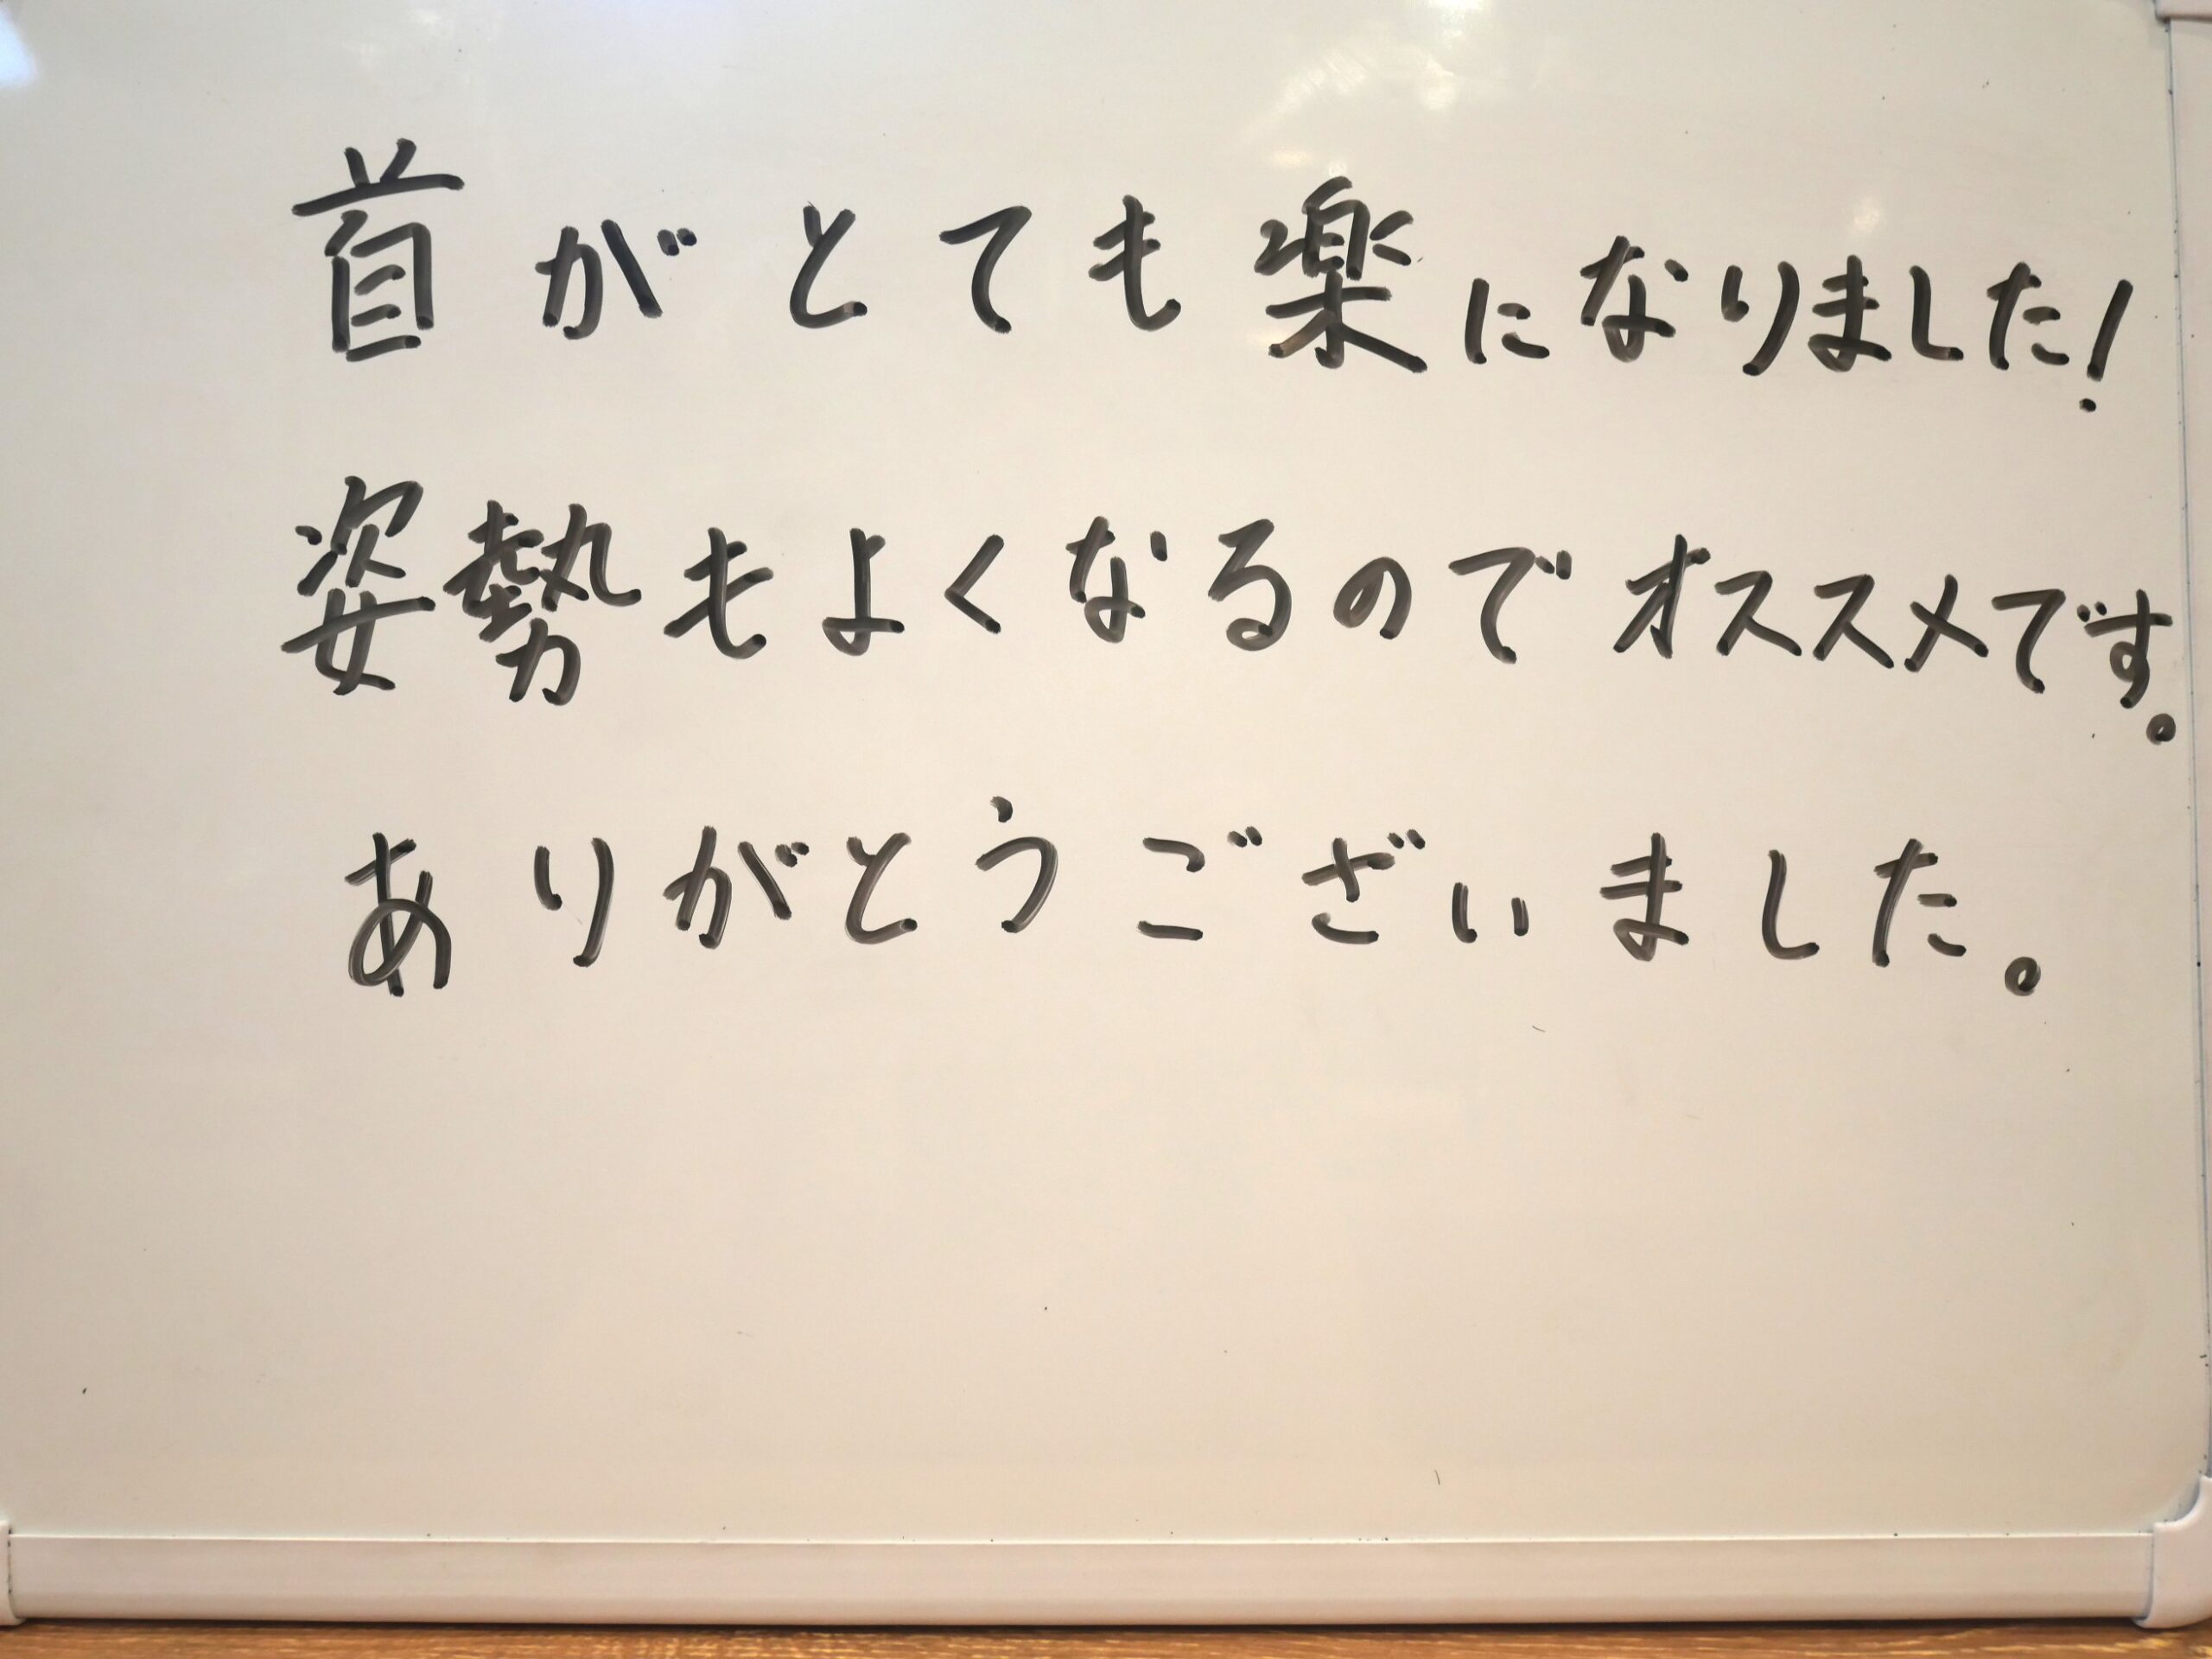 首がとても楽になりました!
姿勢もよくなるのでオススメです。
ありがとうございました。